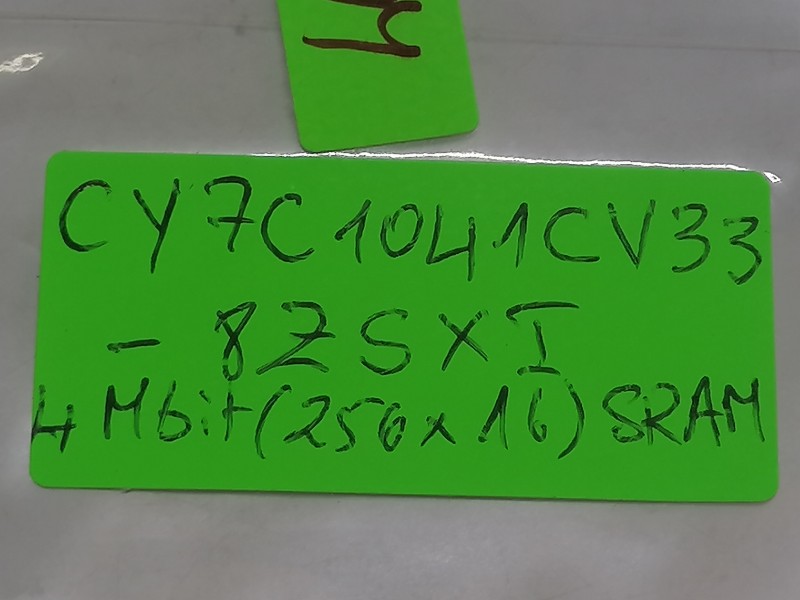 CY7C1041CV33
- 8ZSXI
4 Mbit (256 x 16) SRAM